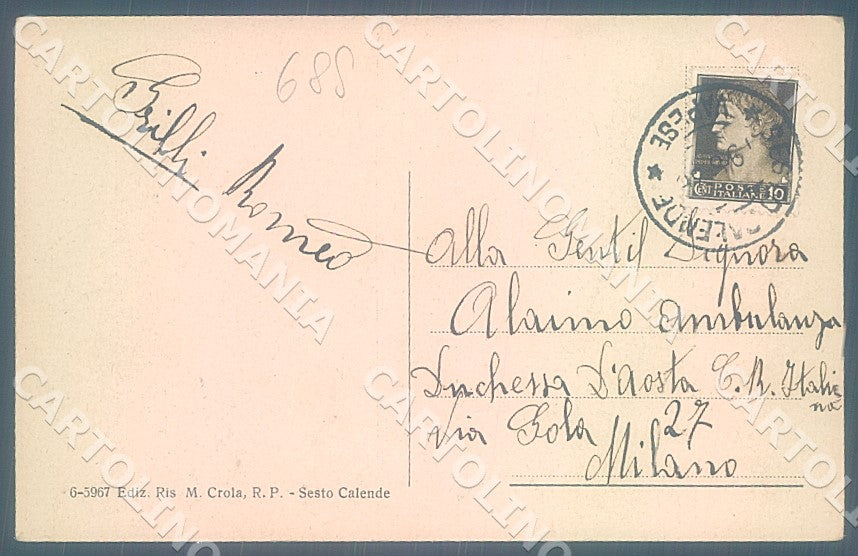 688
Grilli Romeo
Alla Gentil Signora
Alaimo Ambulanza
Duchessa D'Aosta C. R. Italiana
Via Gola 27
Milano
POSTE
ITALIANE
CENT 10
CALENDE
VARESE
6-5967 Ediz. Ris M. Crola, R. P. - Sesto Calende
CARTOLINOMANIA